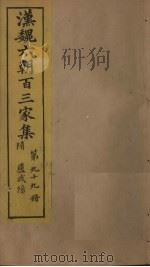 漢魏六朝百三家集
隋
盧武陽
第九十九冊